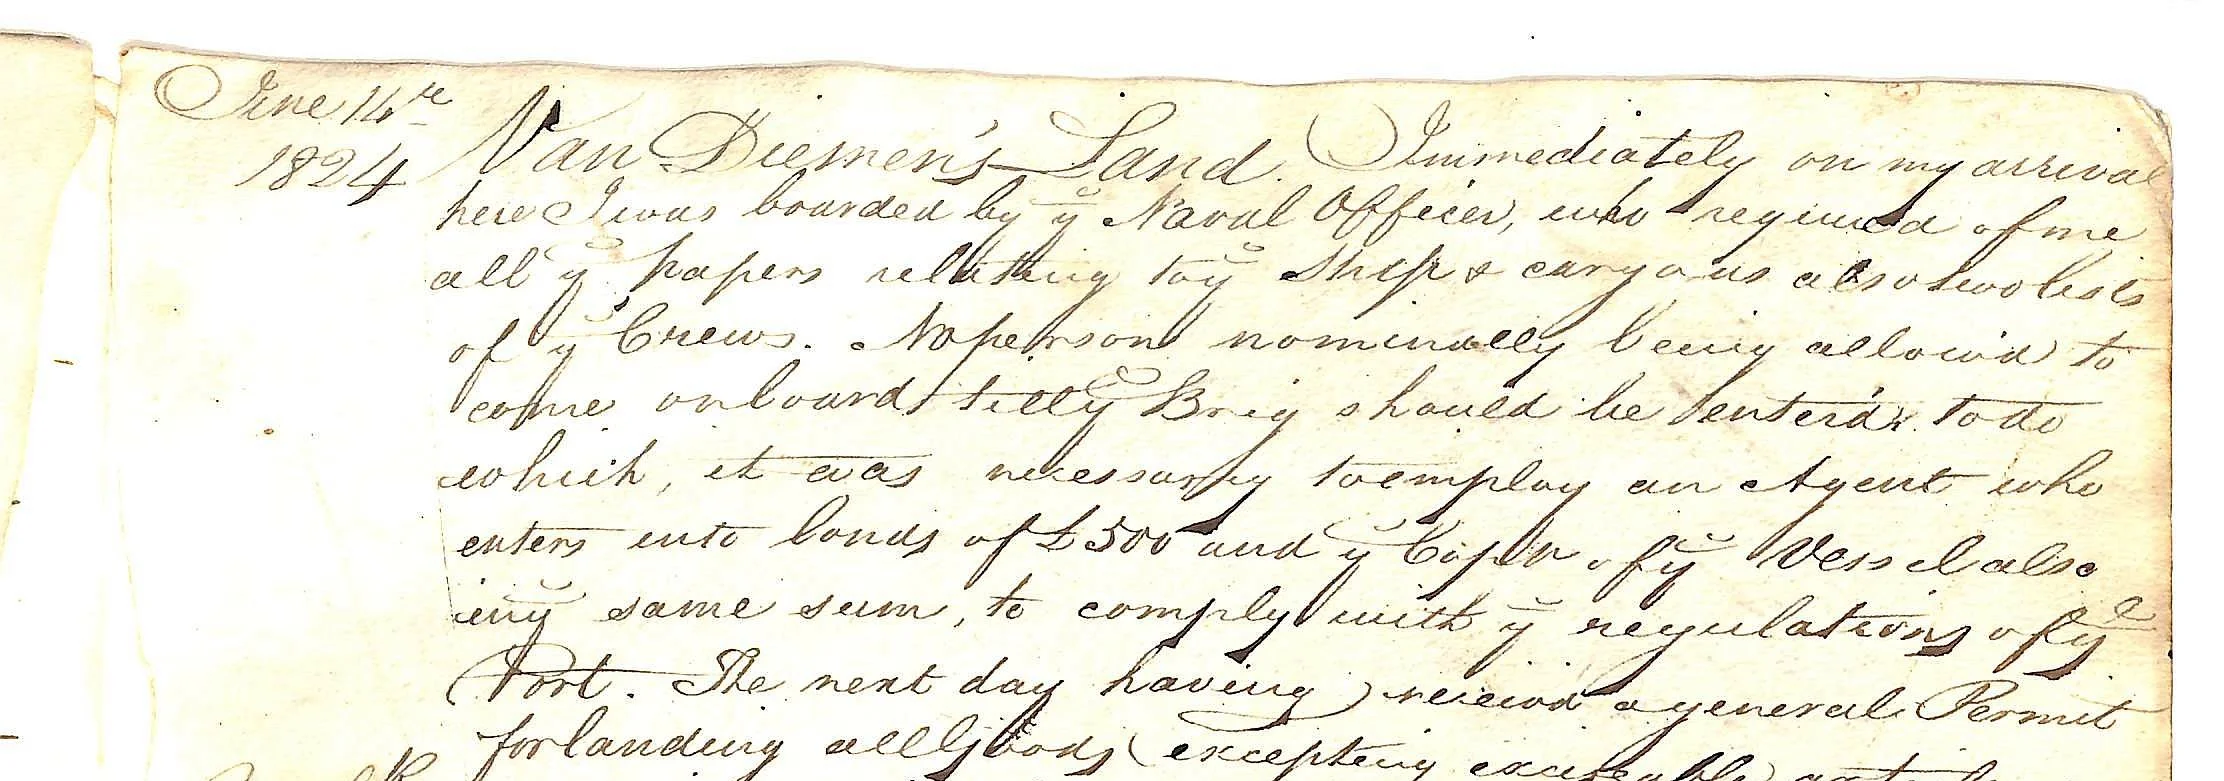 June 14th
1824
Van Diemen's Land. Immediately on my arrival
here I was boarded by ye Naval Officer, who required of me
all ye papers relating to ye Ship & cargo as also two lists
of ye Crews. No person nominally being allow'd to
come on board till ye Brig should be enter'd, to do
which, it was necessary to employ an Agent who
enters into bonds of £500 and ye Captn of ye Vessel also
in ye same sum, to comply with ye regulations of ye
Port. The next day having receiv'd a general Permit
for landing all goods (excepting exciseable